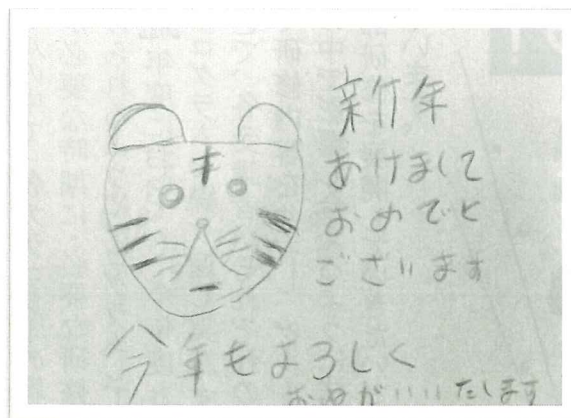 新年
あけまして
おめでと
ございます
今年もよろしく
おねがいいたします